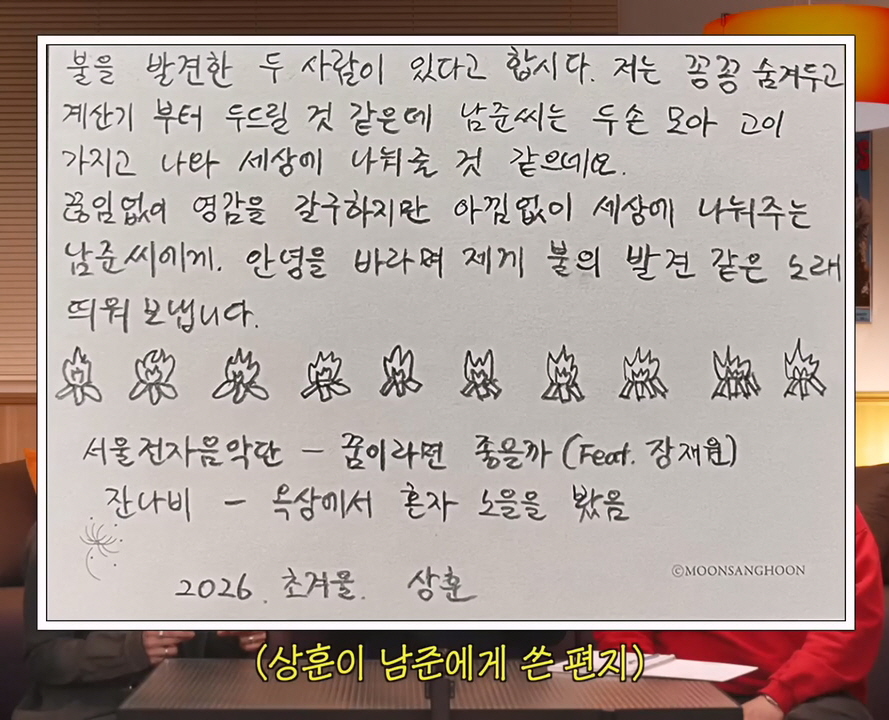 불을 발견한 두 사람이 있다고 합시다. 저는 꽁꽁 숨겨두고
계산기 부터 두드릴 것 같은데 남준씨는 두손 모아 고이
가지고 나와 세상에 나눠줄 것 같은데요.
끊임없이 영감을 갈구하지만 아낌없이 세상에 나눠주는
남준씨에게. 안녕을 바라며 제게 불의 발견 같은 노래
띄워 보냅니다.
서울전자음악단 - 꿈이라면 좋을까 (Feat. 장재원)
잔나비 - 옥상에서 혼자 노을을 봤음
2026. 초겨울. 상훈
©MOONSANGHOON
(상훈이 남준에게 쓴 편지)